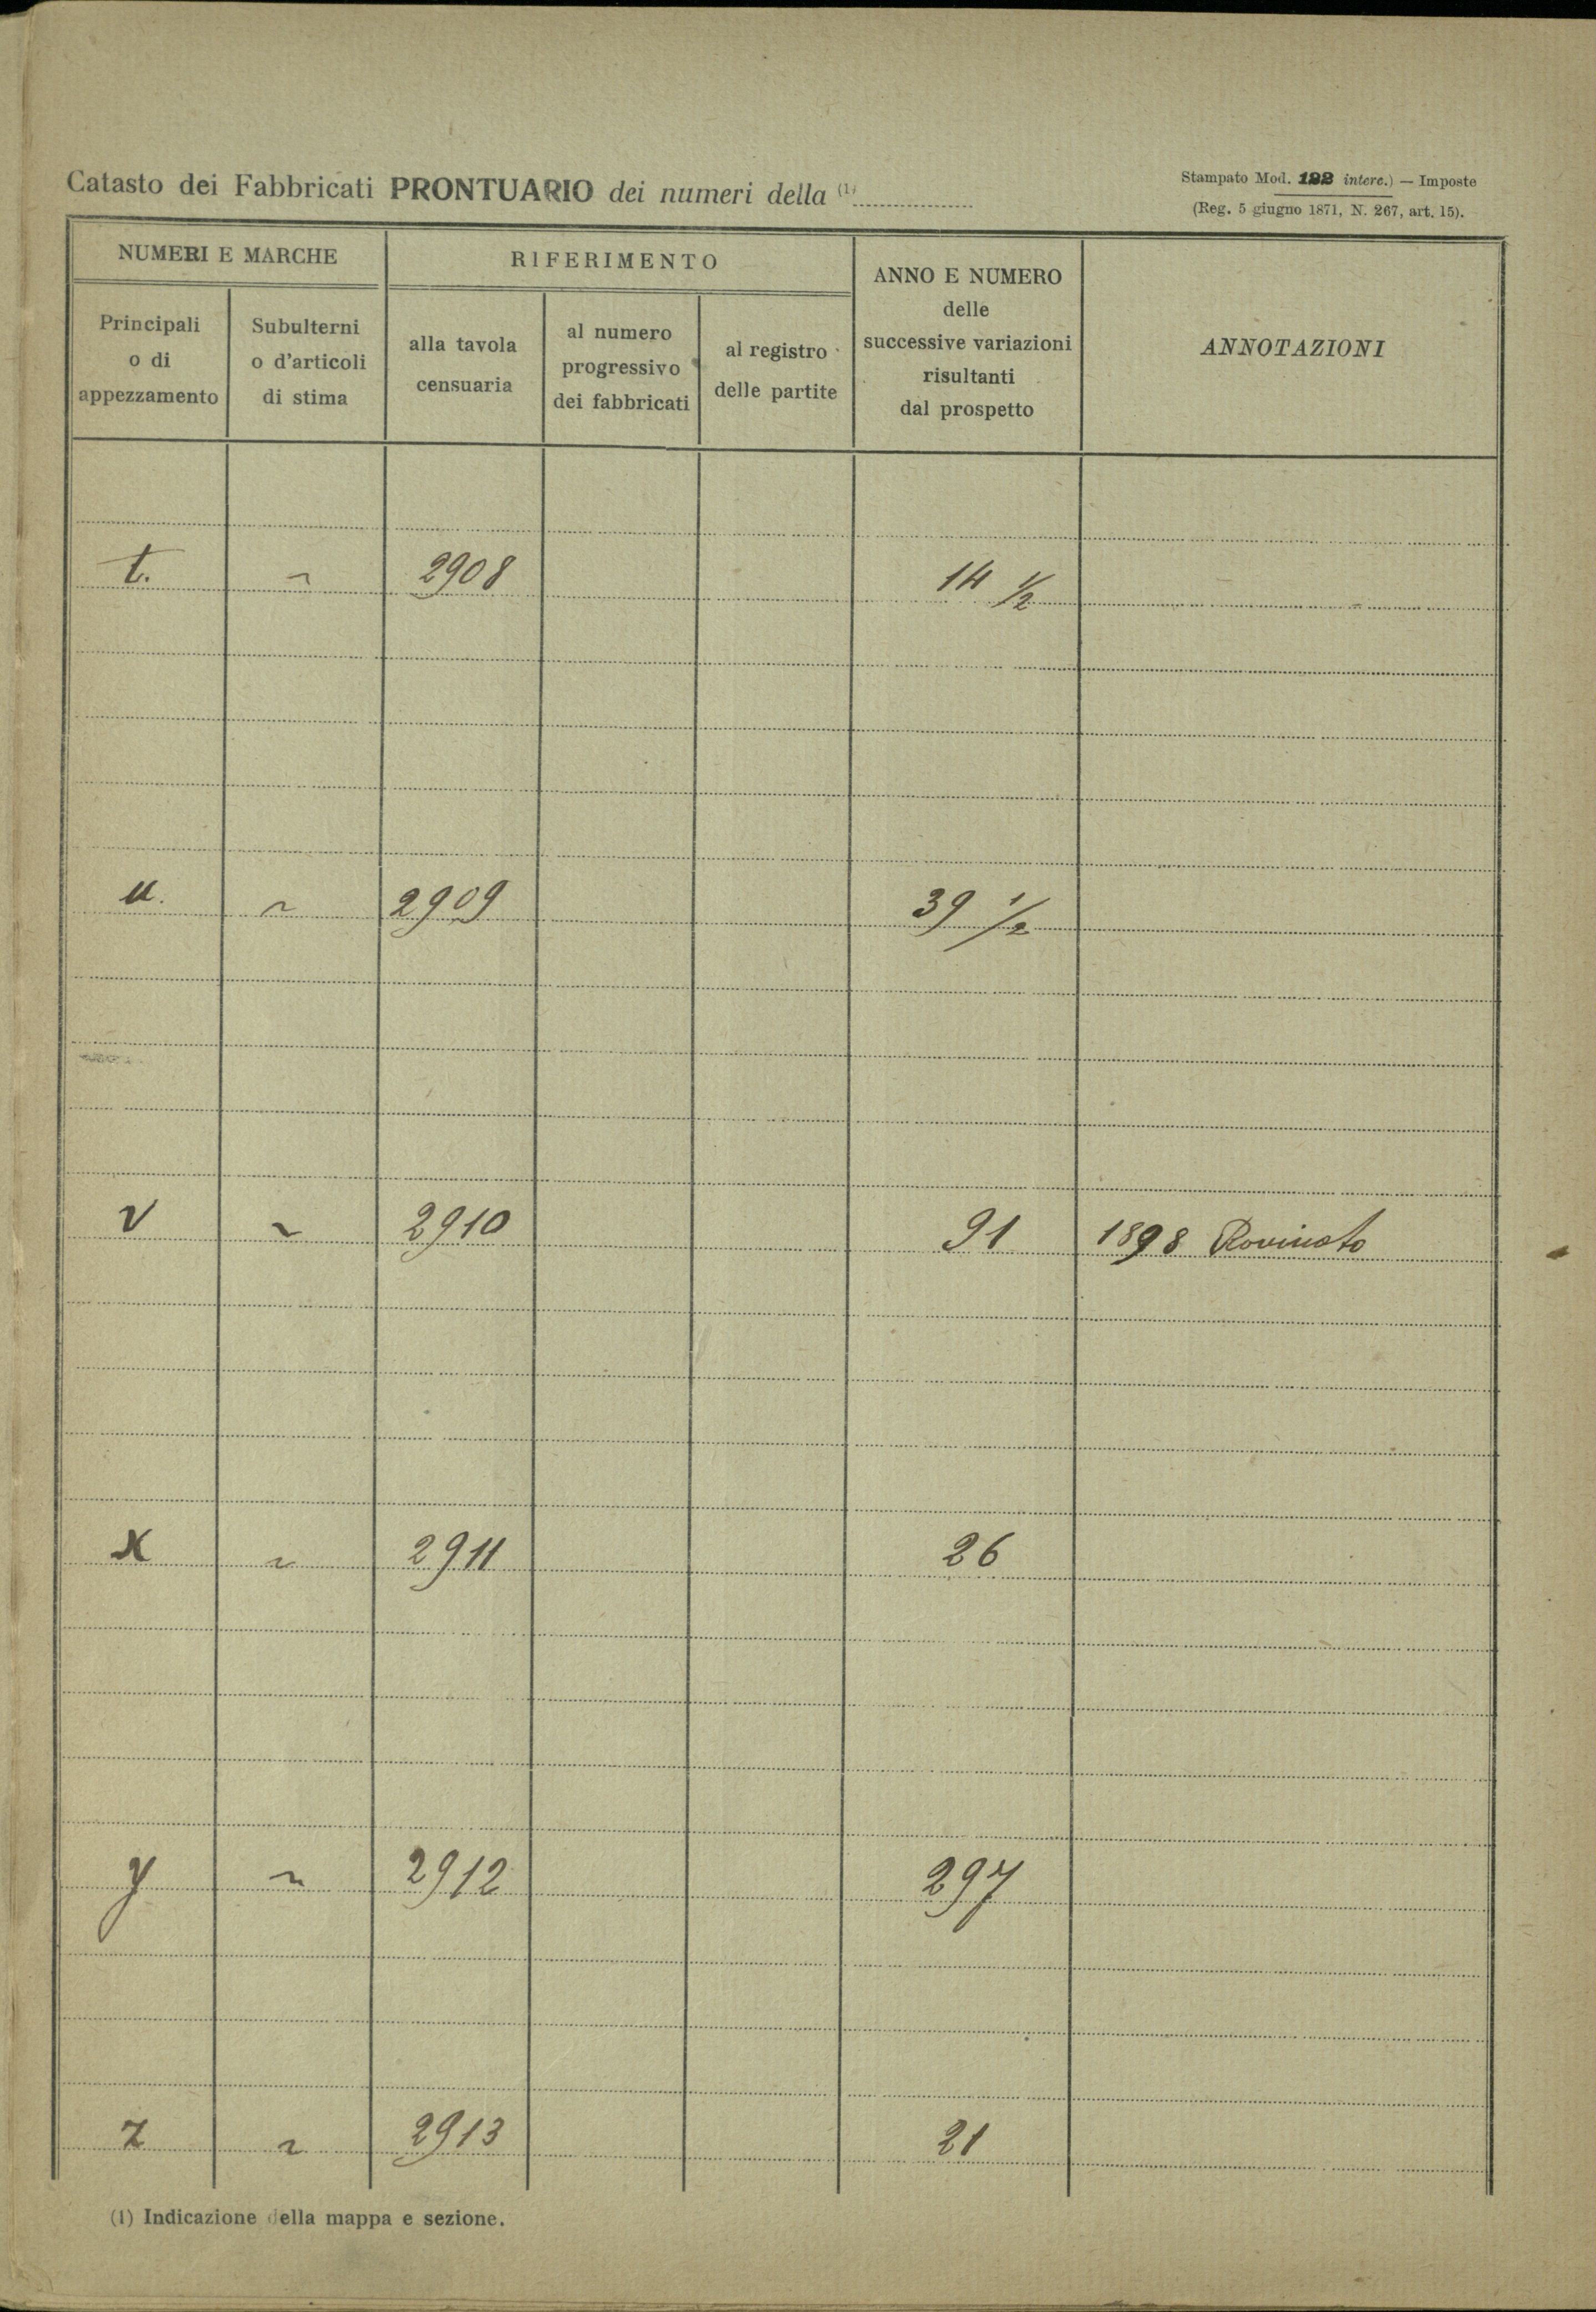 Catasto dei Fabbricati PRONTUARIO dei numeri della (1)
Stampato Mod. 122 interc.) — Imposte
(Reg. 5 giugno 1871, N. 267, art. 15).
NUMERI E MARCHE
RIFERIMENTO
ANNO E NUMERO
delle
successive variazioni
risultanti
dal prospetto
ANNOTAZIONI
Principali
o di
appezzamento
Subulterni
o d'articoli
di stima
alla tavola
censuaria
al numero
progressivo
dei fabbricati
al registro
delle partite
t. ~ 2908 14 1/2
u. ~ 2909 39 1/2
v ~ 2910 91 1898 Rovinato
x ~ 2911 26
y ~ 2912 297
z ~ 2913 21
(1) Indicazione della mappa e sezione.